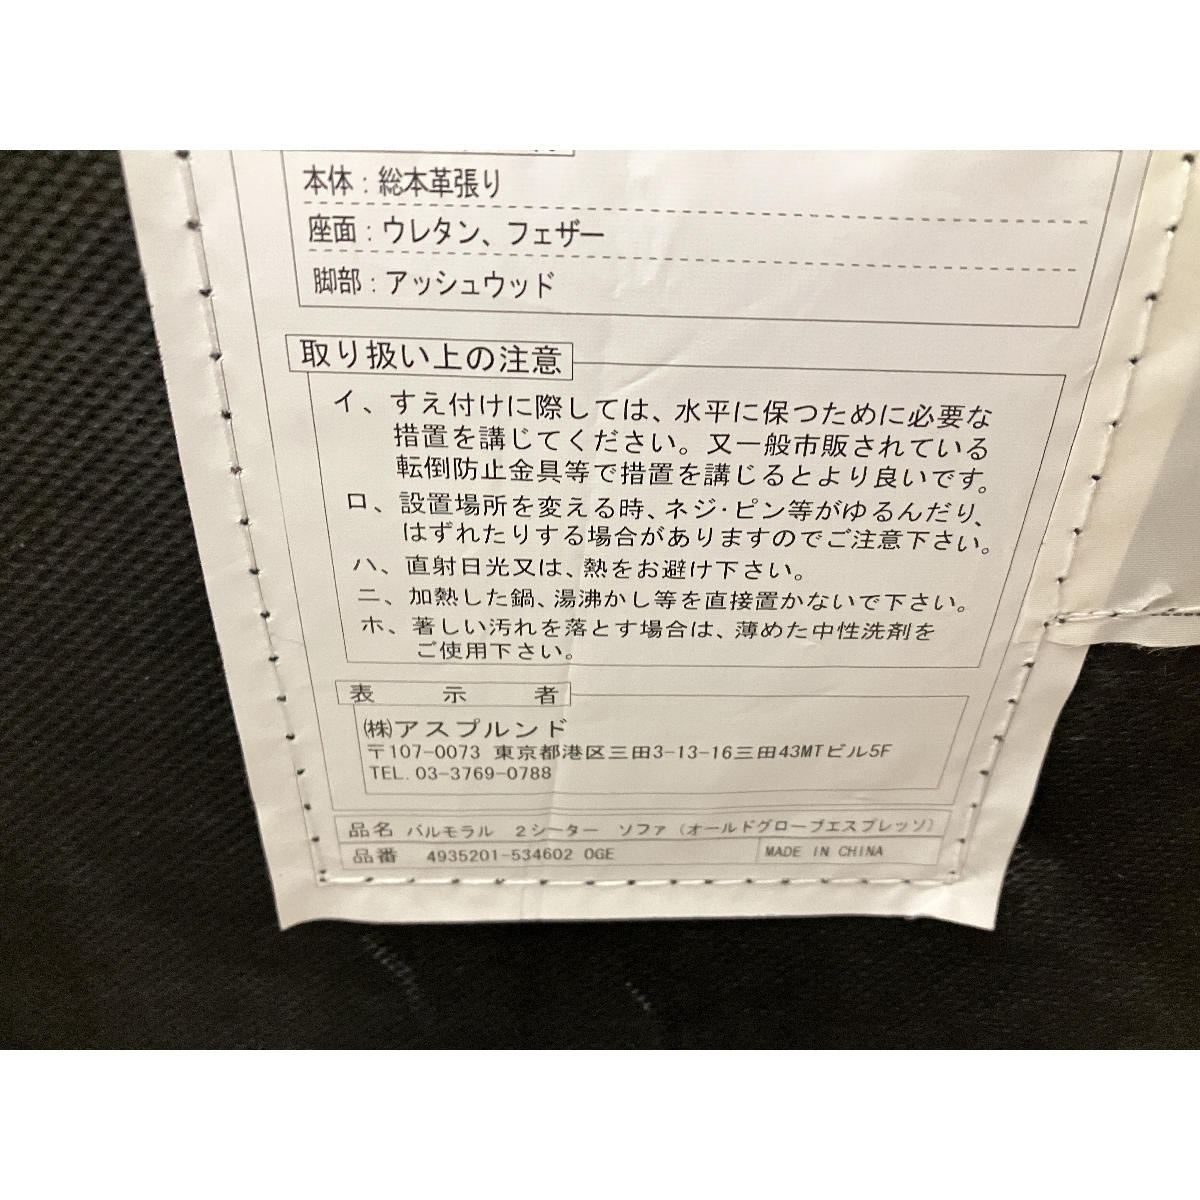 本体：総本革張り
座面：ウレタン、フェザー
脚部：アッシュウッド
取り扱い上の注意
イ、すえ付けに際しては、水平に保つために必要な
措置を講じてください。又一般市販されている
転倒防止金具等で措置を講じるとより良いです。
ロ、設置場所を変える時、ネジ・ピン等がゆるんだり、
はずれたりする場合がありますのでご注意下さい。
ハ、直射日光又は、熱をお避け下さい。
ニ、加熱した鍋、湯沸かし等を直接置かないで下さい。
ホ、著しい汚れを落とす場合は、薄めた中性洗剤を
ご使用下さい。
表示者
㈱アスプルンド
〒107-0073 東京都港区三田3-13-16三田43MTビル5F
TEL. 03-3769-0788
品名 バルモラル 2シーター ソファ(オールドグローブエスプレッソ)
品番 4935201-534602 OGE MADE IN CHINA